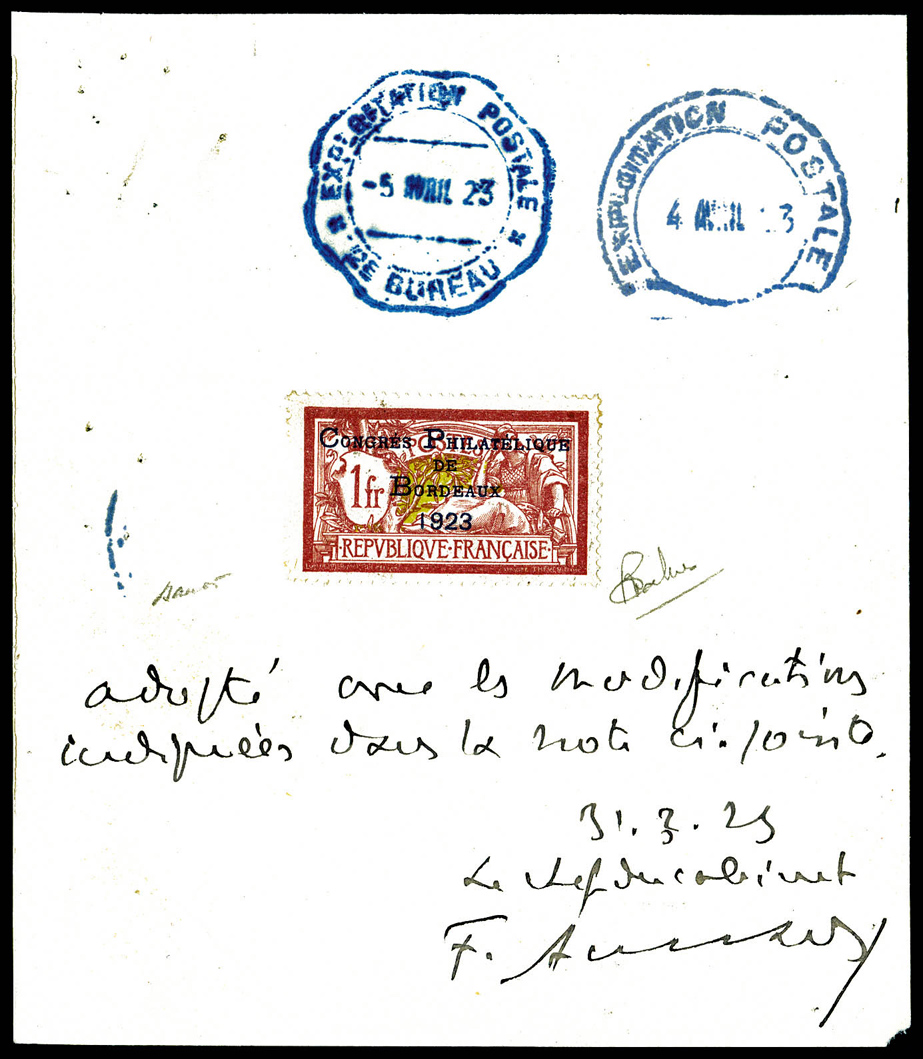 EXPLOITATION POSTALE
-5 AVRIL 23
2E BUREAU
EXPLOITATION POSTALE
4 AVRIL 23
CONGRES PHILATÉLIQUE
DE
BORDEAUX
1923
1fr
REPVBLIQVE·FRANÇAISE
adopté avec les modifications
indiquées dans la note ci-jointe.
31.3.23
Le chef du cabinet
F.